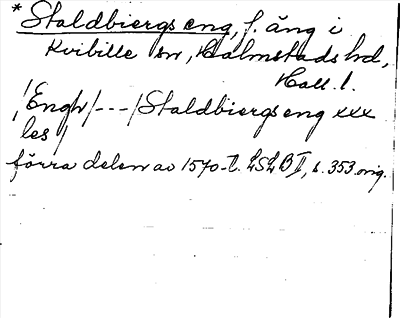 * Staldbiergs eng, f. äng i
Kvibille sn, Halmstads hd,
Hall. l.
/Engh/ --- / Staldbiergs eng xxx
les /
förra delen av 1570-t. LSLB II, s. 353 orig.